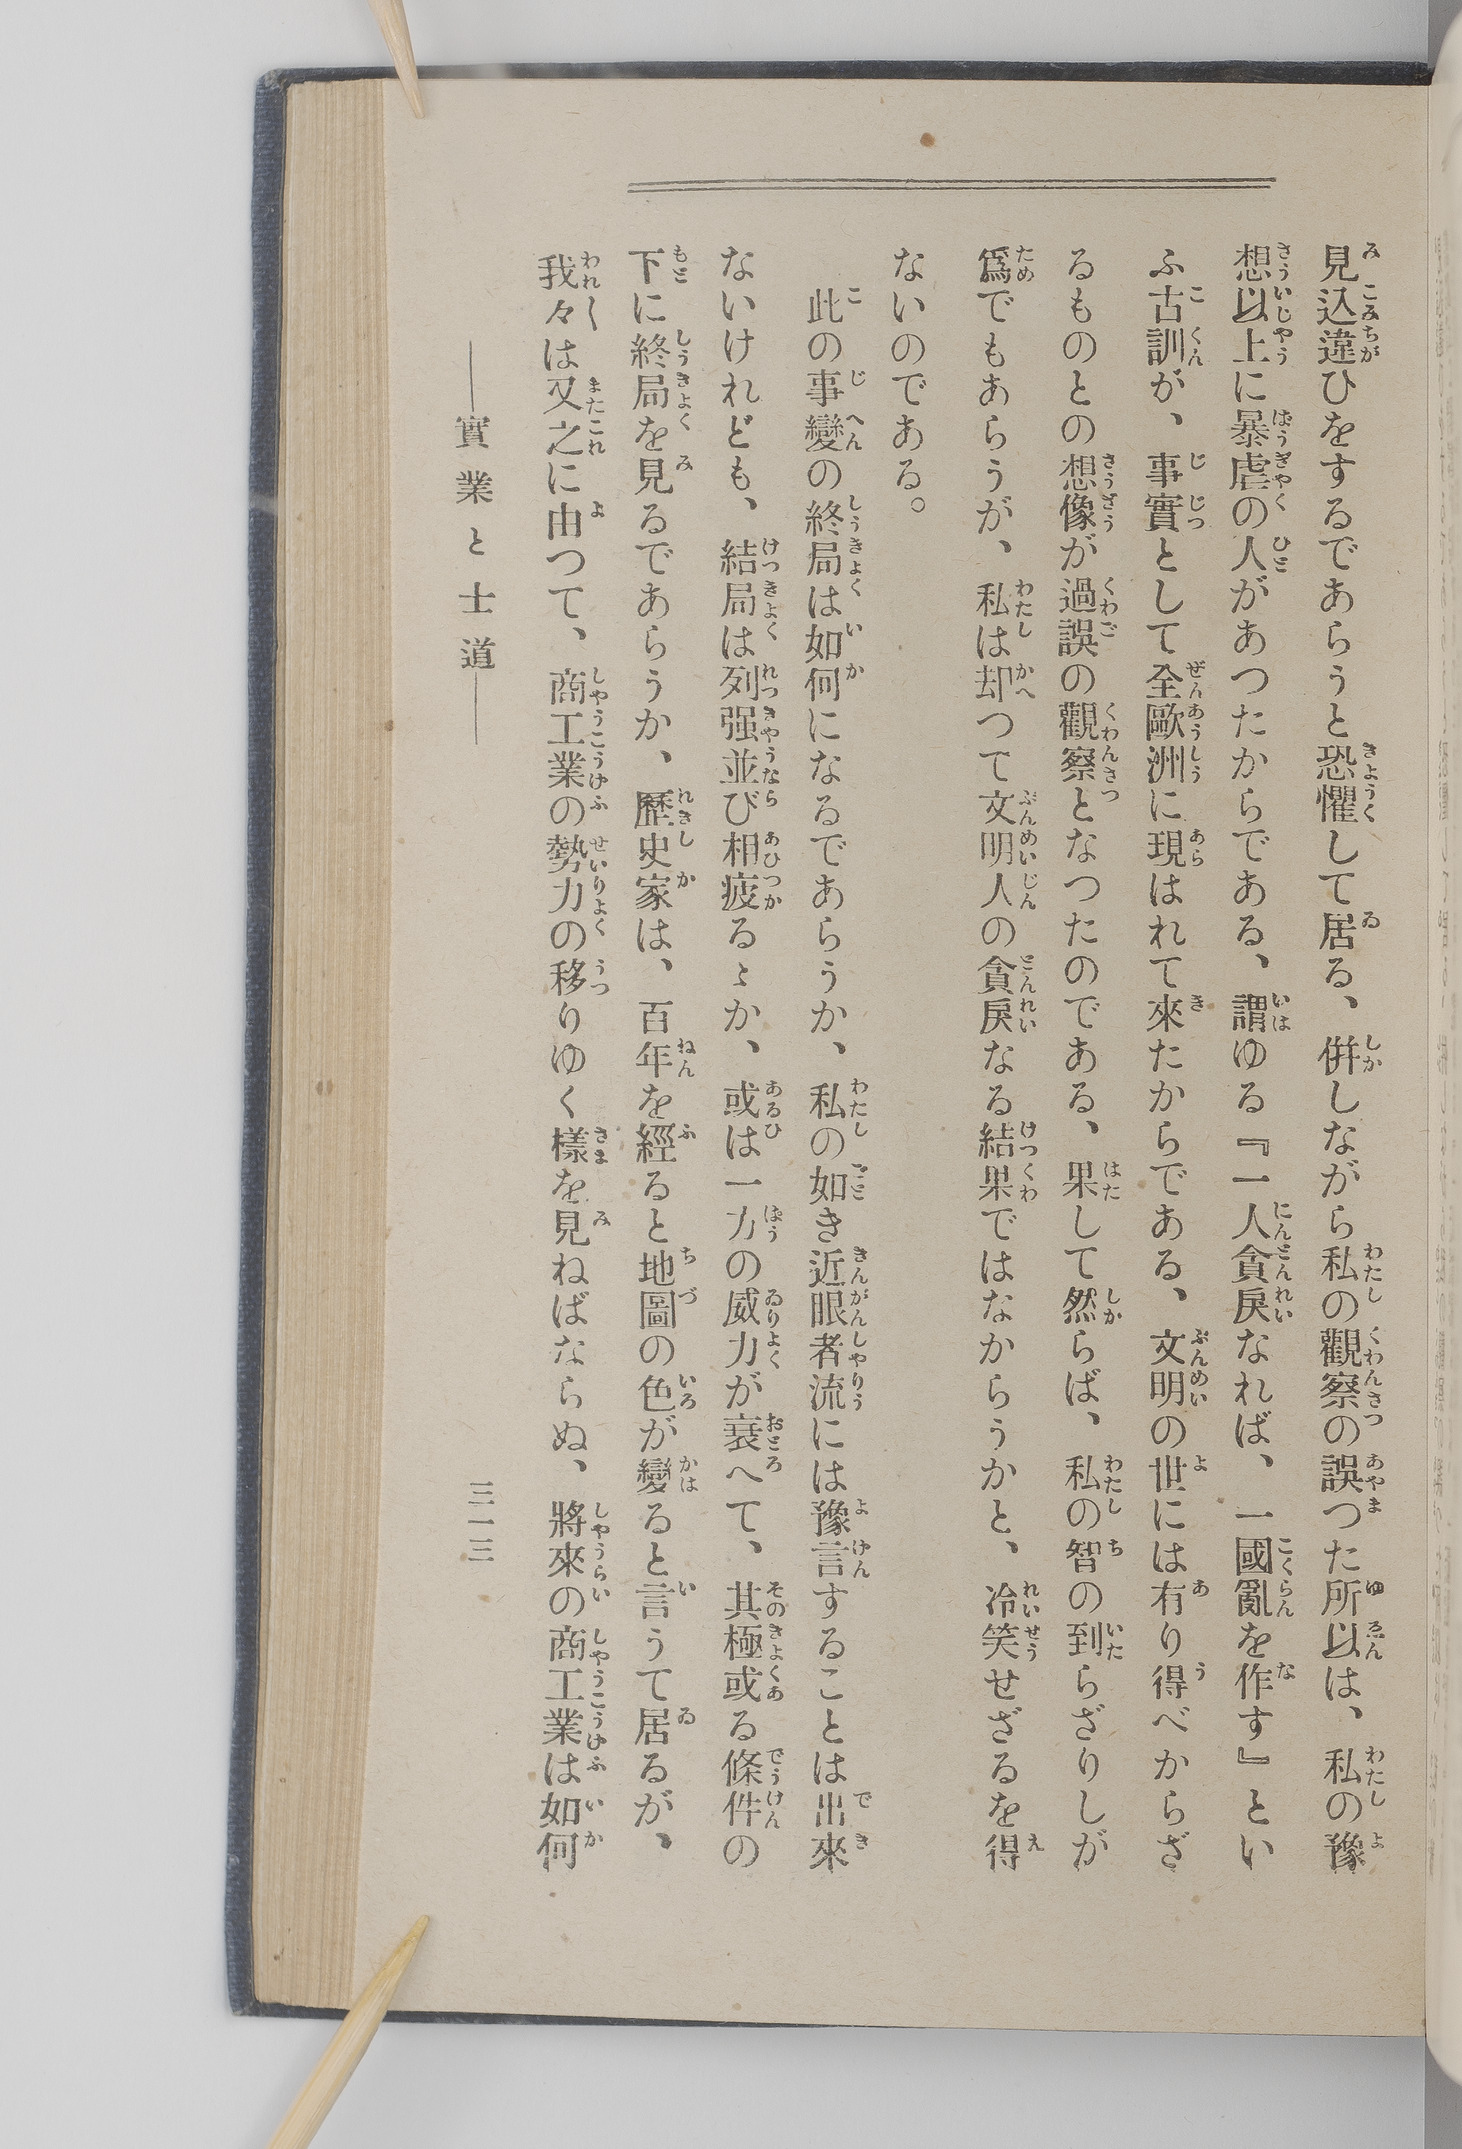 見込違ひをするであらうと恐懼して居る、併しながら私の觀察の誤つた所以は、私の豫
想以上に暴虐の人があつたからである、謂ゆる『一人貪戻なれば、一國亂を作す』とい
ふ古訓が、事實として全歐洲に現はれて來たからである、文明の世には有り得べからざ
るものとの想像が過誤の觀察となつたのである、果して然らば、私の智の到らざりしが
爲でもあらうが、私は却つて文明人の貪戻なる結果ではなからうかと、冷笑せざるを得
ないのである。
此の事變の終局は如何になるであらうか、私の如き近眼者流には豫言することは出來
ないけれども、結局は列强並び相疲るゝか、或は一方の威力が衰へて、其極或る條件の
下に終局を見るであらうか、歷史家は、百年を經ると地圖の色が變ると言うて居るが、
我々は又之に由つて、商工業の勢力の移りゆく樣を見ねばならぬ、將來の商工業は如何
――實業と士道――
三一三